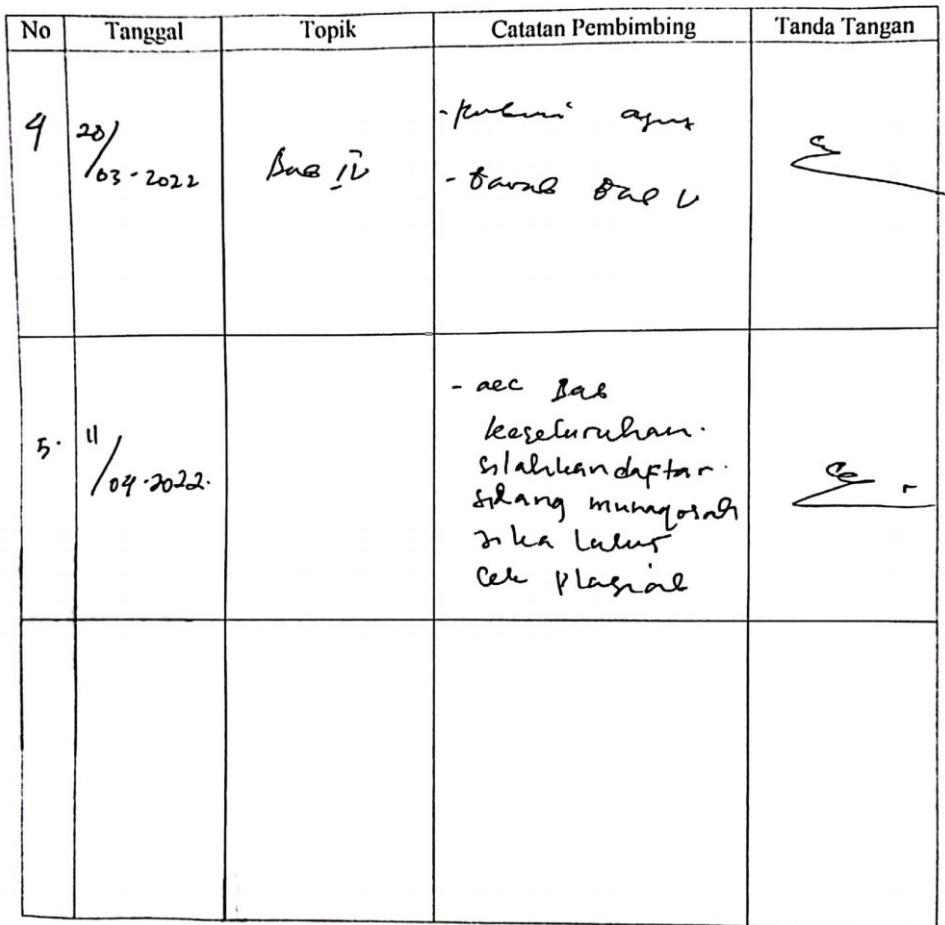 No Tanggal Topik Catatan Pembimbing Tanda Tangan
4 20/03-2022 Bab IV
- Bab V
5. 11/04-2022. - acc Bab
keseluruhan.
silahkan daftar.
sidang munaqosah
jika lulus
cek plagiat